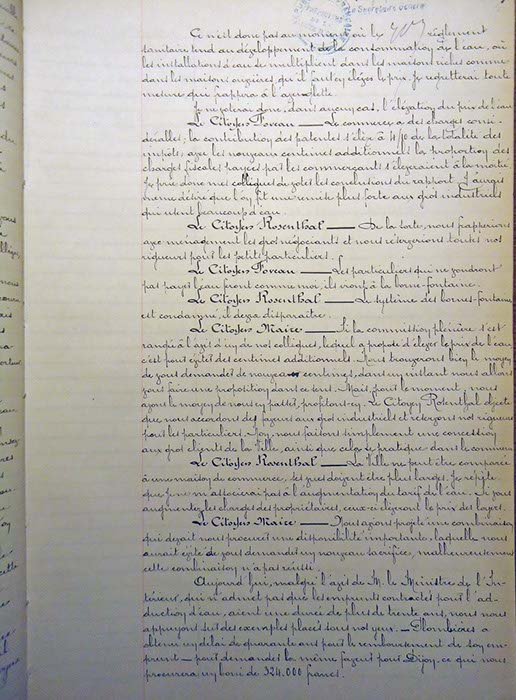 Le Secrétaire Général
Ce n'est donc pas au moment où le règlement
sanitaire tend au développement de la consommation de l'eau, où
les installations d'eau se multiplient dans les maisons riches comme
dans les maisons ouvrières qu'il faut en élever le prix. Je regretterai toute
mesure qui frappera
Je ne voterai donc, dans aucun cas, l'élévation du prix de l'eau
Le Citoyen Foreau — Le commerce a des charges consi-
dérables; la contribution des patentes s'élève à de la totalité des
impôts; avec les nouveaux centimes additionnels la proportion des
charges fiscales payées par les commerçants s'élèveraient à la moitié
Je prie donc mes collègues de voter les conclusions du rapport. J'aurais
même désiré que l'on fit une remise plus forte aux gros industriels
qui usent beaucoup d'eau.
Le Citoyen Rosenthal — De la sorte, nous frapperions
avec ménagement les gros négociants et nous réserverions toutes nos
rigueurs pour les petits particuliers.
Le Citoyen Foreau — Les particuliers qui ne voudront
pas payer l'eau feront comme moi, ils iront à la borne-fontaine.
Le Citoyen Rosenthal — Le système des bornes-fontaine
est condamné, il devra disparaître.
Le Citoyen Maire — Si la commission plénière s'est
rangée à l'avis d'un de nos collègues, lequel a proposé d'élever le prix de l'eau
c'est pour éviter des centimes additionnels. Nous trouverons bien le moyen
de vous demander de nouveaux centimes, dans un instant nous allons
vous faire une proposition dans ce sens. Mais, pour le moment, nous
avons le moyen de nous en passer, profitons-en. Le Citoyen Rosenthal objecte
que nous accordons des faveurs aux gros industriels et réservons nos rigueurs
pour les particuliers. Non, nous faisons simplement une concession
aux gros clients de la Ville, ainsi que cela se pratique dans le commerce
Le Citoyen Rosenthal — La Ville ne peut être comparée
à une maison de commerce, ses vues doivent être plus larges. Je répète
que je ne m'associerai pas à l'augmentation du tarif de l'eau. Si vous
augmentez les charges des propriétaires, ceux-ci élèveront le prix des loyers.
Le Citoyen Maire — Nous avons projeté une combinaison
qui devait nous procurer une disponibilité importante, laquelle nous
aurait évité de vous demander un nouveau sacrifice, malheureusement
cette combinaison n'a pas réussi.
Aujourd'hui, malgré l'avis de M. le Ministre de l'In-
térieur, qui n'admet pas que les emprunts contractés pour l'ad-
duction d'eau, aient une durée de plus de trente ans, nous nous
appuyons sur des exemples placés sous nos yeux. — Plombières a
obtenu un délai de quarante ans pour le remboursement de son em-
prunt — pour demander la même faveur pour Dijon, ce qui nous
procurera un boni de 324.000 francs.